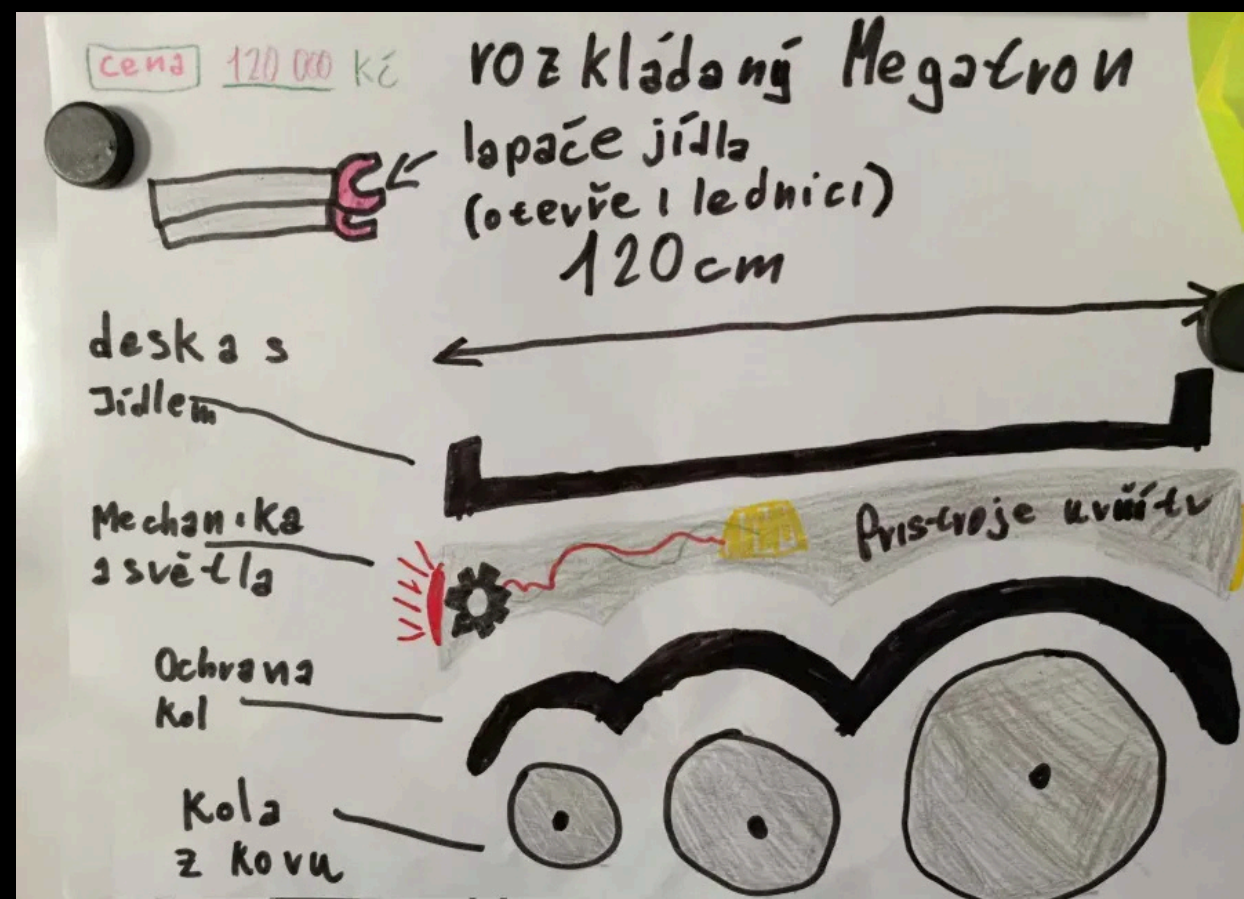 cena 120 000 Kč
rozkládaný Megatron
lapače jídla
(otevře i lednici)
120 cm
deska s
Jídlem
Mechanika
a světla
Přístroje uvnitř
Ochrana
Kol
Kola
z kovu